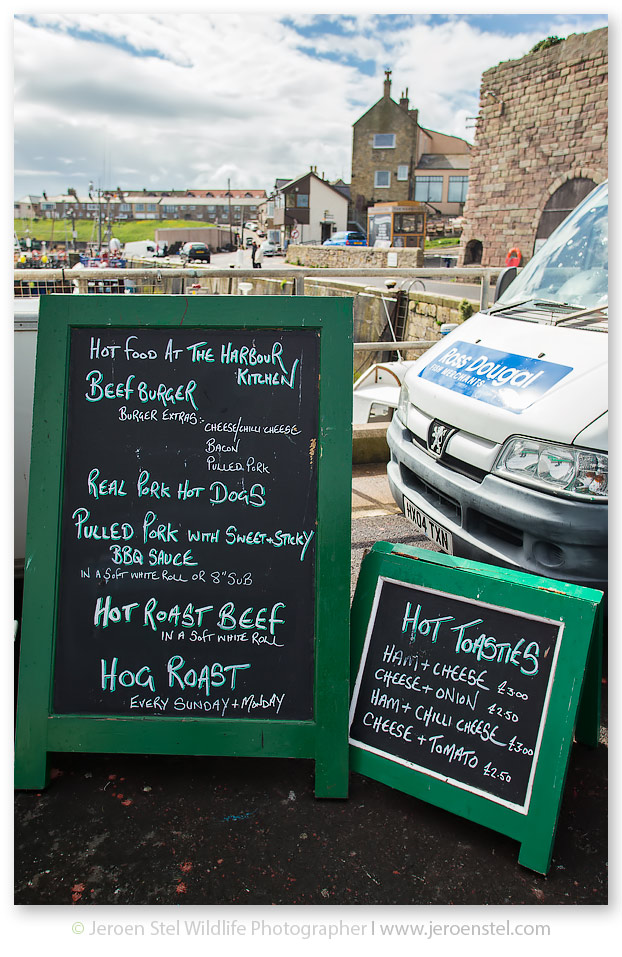 HOT FOOD AT THE HARBOUR
KITCHEN
BEEF BURGER
BURGER EXTRAS:
CHEESE/CHILLI CHEESE
BACON
PULLED PORK
REAL PORK HOT DOGS
PULLED PORK WITH SWEET+STICKY
BBQ SAUCE
IN A SOFT WHITE ROLL OR 8" SUB
HOT ROAST BEEF
IN A SOFT WHITE ROLL
HOG ROAST
EVERY SUNDAY + MONDAY
Ross Dougal
FISH MERCHANTS
HX04 TXN
HOT TOASTIES
HAM + CHEESE £3.00
CHEESE + ONION £2.50
HAM + CHILLI CHEESE £3.00
CHEESE + TOMATO £2.50
© Jeroen Stel Wildlife Photographer | www.jeroenstel.com